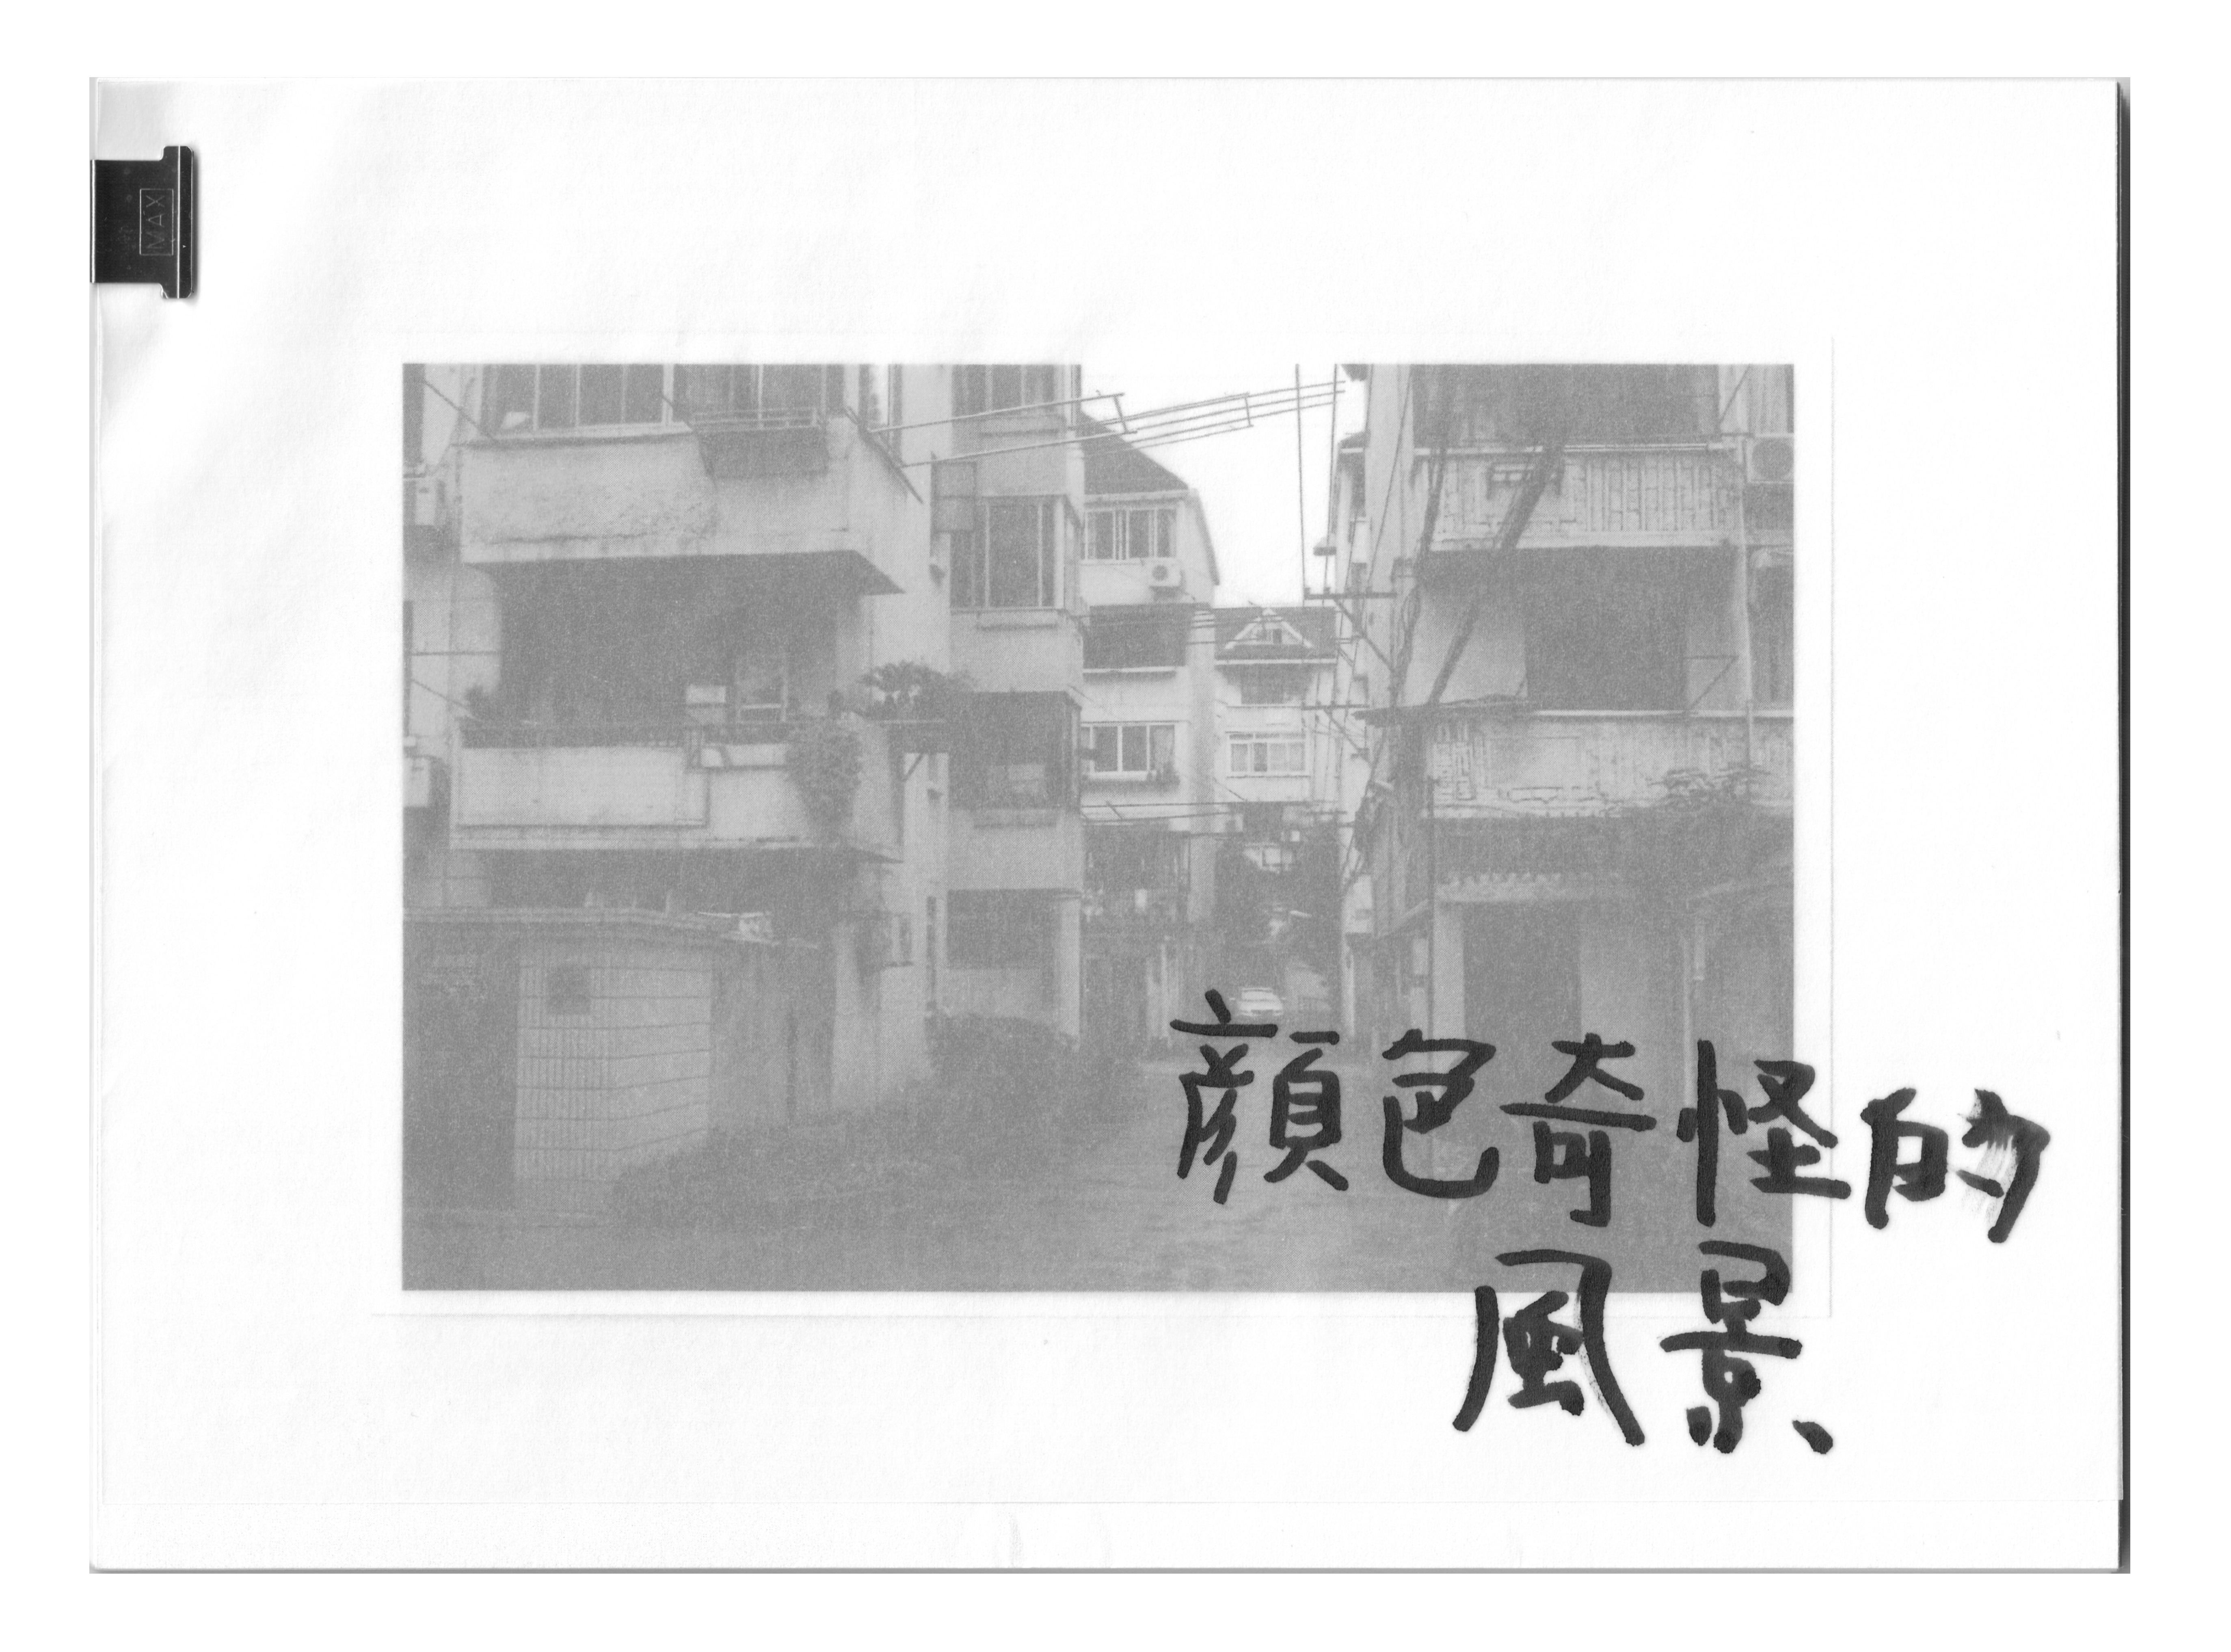 MAX
顔色奇怪的
風景